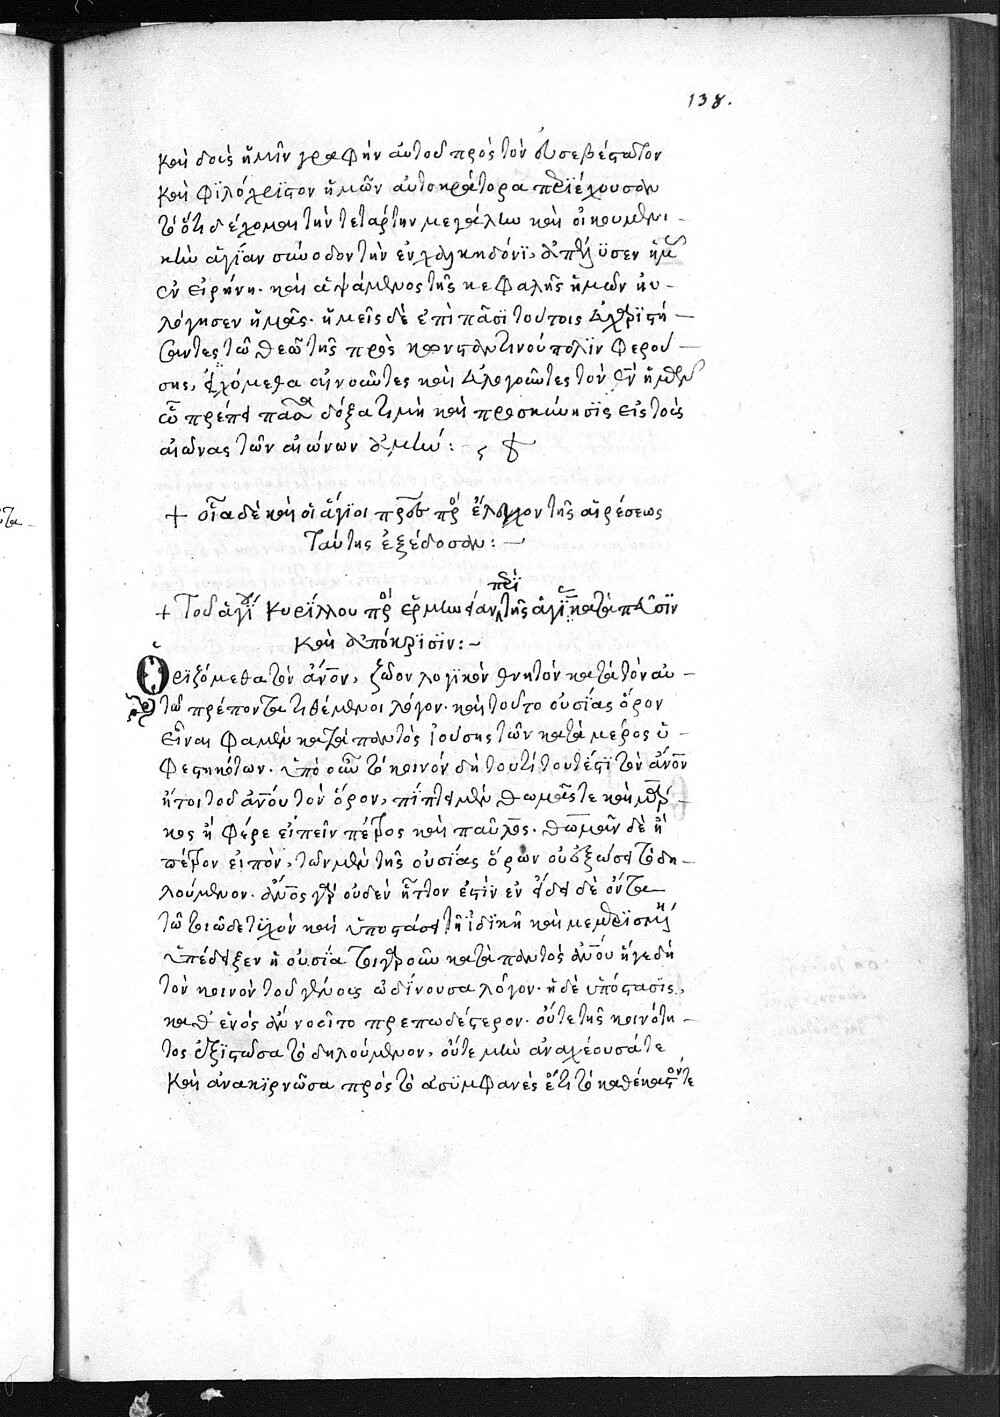 138.
καὶ δοὺς ἡμῖν γραφὴν αὐτοῦ πρὸς τὸν εὐσεβέστατον
καὶ φϊλόχριστον ἡμῶν αὐτοκράτορα περϊέχουσαν
τὸ ὅτι δέχομαι τὴν τετάρτην μεγάλην καὶ οἰκουμενι-
κὴν ἁγίαν σύνοδον τὴν ἐν χαλκηδόνϊ, ἀπέλϋσεν ἡμᾶς
ἐν εἰρήνη. καὶ ἁψάμενος τῆς κεφαλῆς ἡμῶν ηὐ-
λόγησεν ἡμᾶς. ἡμεῖς δὲ ἐπὶ πᾶσϊ τούτοις εὐχαρϊστή-
σαντες τῶ θεῶ τῆς πρὸς κωνσταντινούπολϊν φερού-
σης, εἰχόμεθα αἰνοῦντες καὶ εὐλογοῦντες τὸν θν ἡμῶν
ὧ πρέπει πᾶσα δόξα τιμὴ καὶ προσκύνησϊς εἰς τοὺς
αἰῶνας τῶν αἰώνων ἀμήν:
+ οἷα δὲ καὶ οἱ ἅγϊοι πρς πρὸ ἔλεγχον τῆς αἱρέσεως
ταύτης ἐξέδοσαν: —
+ Τοῦ ἁγί Κυρίλλου πρὸ ἑρμείαν περὶ τῆς ἁγί κατὰ πεῦσϊν
καὶ ἀπόκρϊσϊν: ~
Ὁρϊζόμεθα τὸν ἄνον, ζῶον λογϊκὸν θνητὸν κατὰ τὸν αὐ-
τῶ πρέποντα τιθέμενοι λόγον. καὶ τοῦτο οὐσίας ὅρον
εἶναι φαμὲν κατὰ παντὸς ἰούσης τῶν κατὰ μέρος ὑ-
φεστηκότων. ὑπὸ οὖν τὸ κοινὸν δὴ τουτὶ τουτέστϊ τὸν ἄνον
ἤτοι τοῦ ἀνου τὸν ὅρον, πίπτει μὲν θωμᾶς τε καὶ μάρ-
κος ἢ φέρε εἰπεῖν πέτρος καὶ παῦλος. θωμᾶν δὲ ἢ
πέτρον εἰπὼν, τῶν μὲν τῆς οὐσίας ὅρων οὐκ ἐξώσει τὸ δη-
λούμενον. ἄνος γὰρ οὐδὲν ἧττον ἐστὶν ἐν εἴδει δὲ ὄντα
τῶ τοιῶδε τυχὸν καὶ ὑποστάσει τῆ ἰδϊκῆ καὶ μεμερϊσμένη
ὑπέδειξεν ἡ οὐσία τοιγαροῦν κατὰ παντὸς ἀνου ἥγε δὴ
τὸν κοινὸν τοῦ γένους ὠδίνουσα λόγον. ἡ δὲ ὑπόστασϊς,
καθ' ἑνὸς ἂν νοοῖτο πρεπωδέστερον. οὔτε τῆς κοινότη-
τος ἐξϊστῶσα τὸ δηλούμενον, οὔτε μὴν ἀναχέουσά τε
καὶ ἀνακϊρνῶσα πρὸς τὸ ἀσϋμφανὲς ἔτι τὸ καθέκαστόν τε